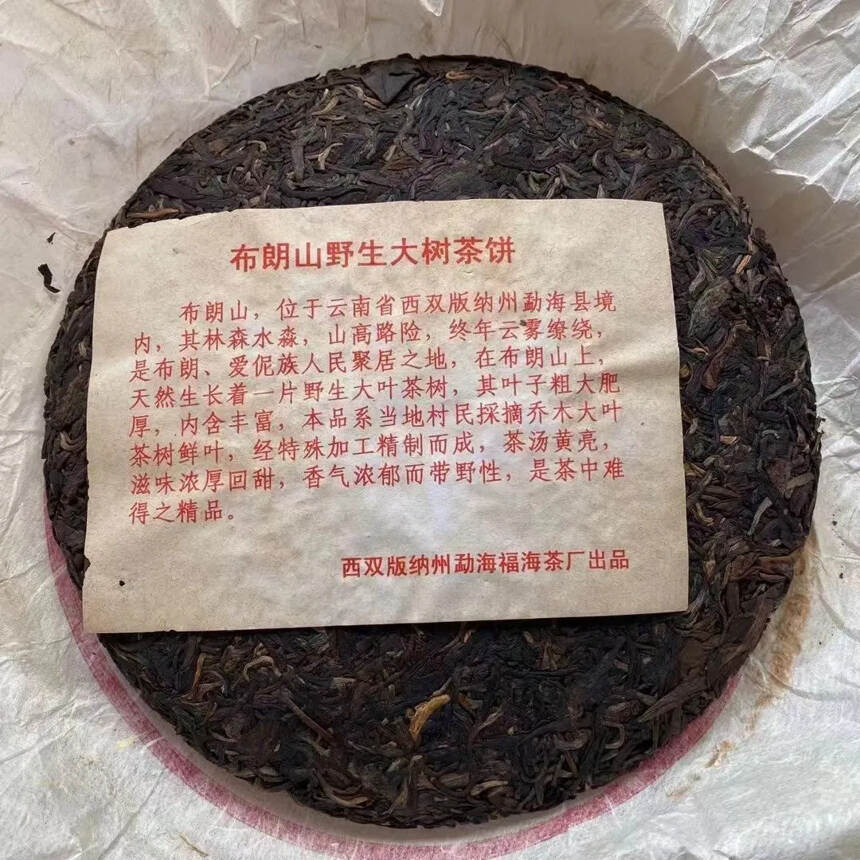 布朗山野生大树茶饼
布朗山，位于云南省西双版纳州勐海县境
内，其林森水淼，山高路险，终年云雾缭绕，
是布朗、爱伲族人民聚居之地，在布朗山上，
天然生长着一片野生大叶茶树，其叶子粗大肥
厚，内含丰富，本品系当地村民採摘乔木大叶
茶树鲜叶，经特殊加工精制而成，茶汤黄亮，
滋味浓厚回甜，香气浓郁而带野性，是茶中难
得之精品。
西双版纳州勐海福海茶厂出品